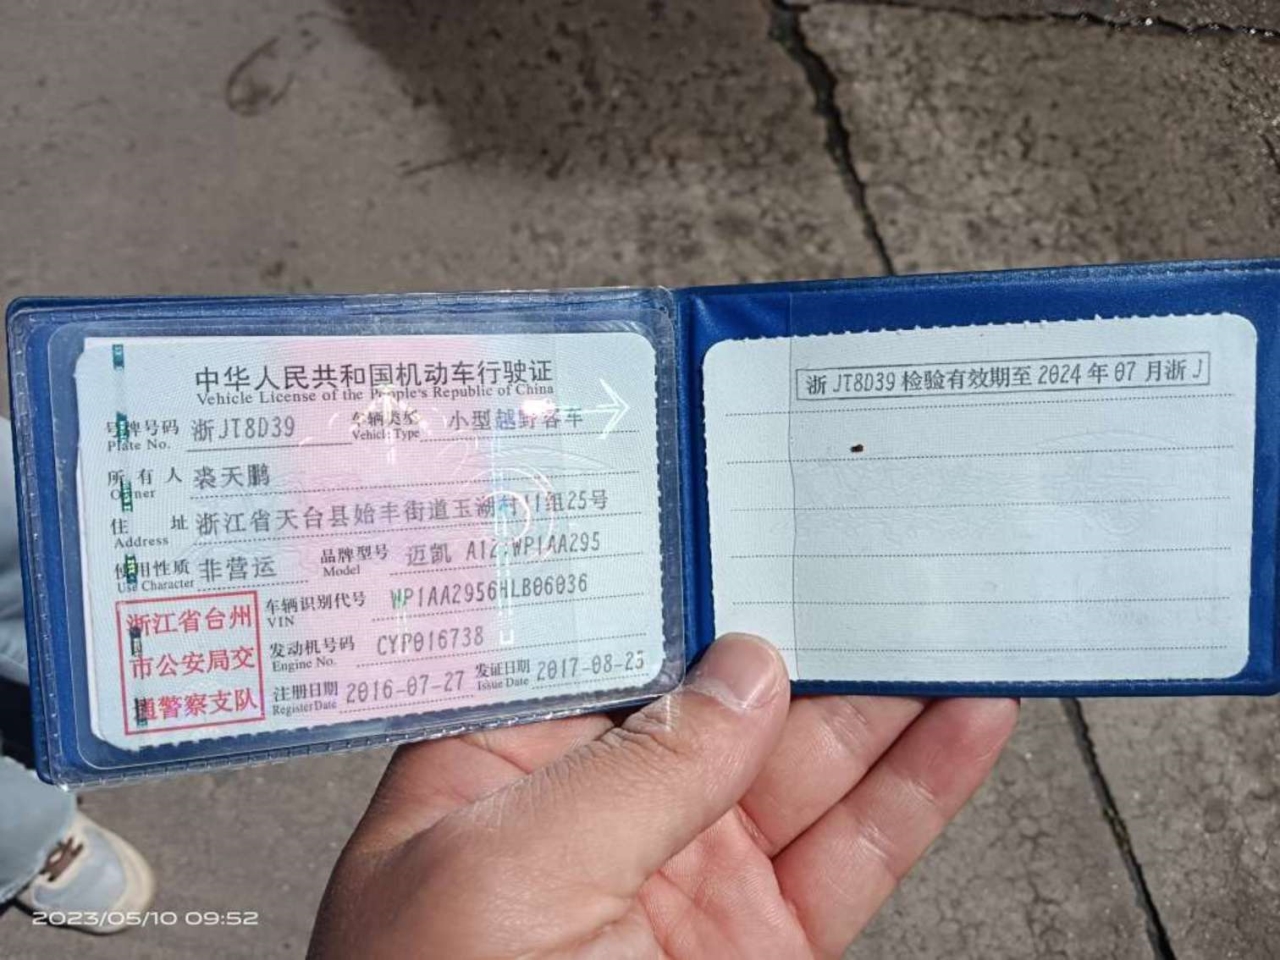 中华人民共和国机动车行驶证
Vehicle License of the People's Republic of China
号牌号码 浙JT8D39 车辆类型 小型越野客车
Plate No. Vehicle Type
所有人 裘天鹏
Owner
住址 浙江省天台县始丰街道玉湖村11组25号
Address
使用性质 非营运 品牌型号 迈凯 A12;WP1AA295
Use Character Model
车辆识别代号 WP1AA2956HLB06036
VIN
发动机号码 CYP016738
Engine No.
注册日期 2016-07-27 发证日期 2017-08-25
Register Date Issue Date
浙江省台州
市公安局交
通警察支队
浙JT8D39检验有效期至2024年07月浙J
2023/05/10 09:52